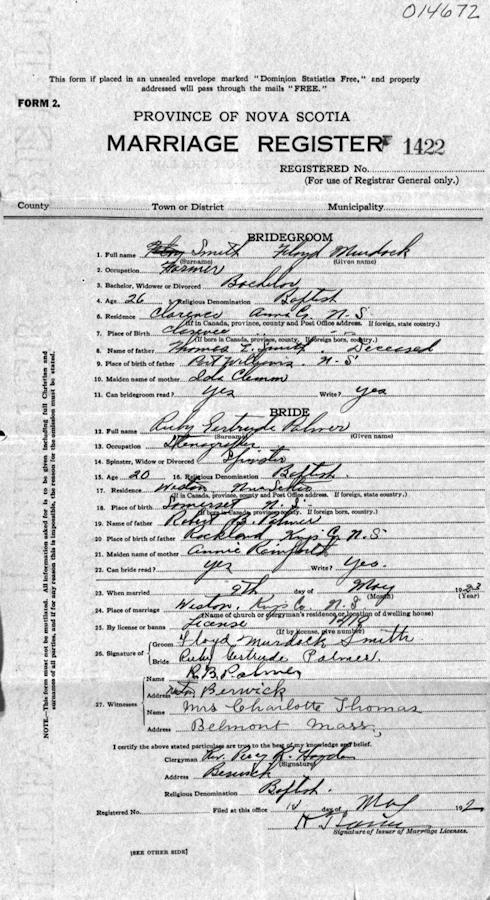 014672
This form if placed in an unsealed envelope marked "Dominion Statistics Free," and properly
addressed will pass through the mails "FREE."
FORM 2.
PROVINCE OF NOVA SCOTIA
MARRIAGE REGISTER 1422
REGISTERED No.
(For use of Registrar General only.)
County Town or District Municipality
BRIDEGROOM
1. Full name Smith Floyd Murdock
(Surname) (Given name)
2. Occupation Farmer
3. Bachelor, Widower or Divorced Bachelor
4. Age 26 Religious Denomination Baptist
6. Residence Clarence Anna Co. N. S
(If in Canada, province, county and Post Office address. If foreign, state country.)
7. Place of Birth Clarence " "
(If born in Canada, province, county. If foreign born, country.)
8. Name of father Thomas E. Smith Deceased
9. Place of birth of father Port Williams N. S
10. Maiden name of mother
11. Can bridegroom read? Yes Write? Yes
BRIDE
12. Full name Ruby Gertrude Palmer
(Surname) (Given name)
13. Occupation Stenographer
14. Spinster, Widow or Divorced Spinster
15. Age 20 16. Religious Denomination Baptist.
17. Residence Weston
(If in Canada, province, county and Post Office address. If foreign, state country.)
18. Place of Birth Somerset N. S
(If born in Canada, province, county. If foreign born, country.)
19. Name of father Robert B. Palmer
20. Place of birth of father Rockland Kings Co N. S
21. Maiden name of mother Annie
22. Can bride read? Yes Write? Yes.
23. When married 9th day of May 192
(Month) (Year)
24. Place of marriage Weston, Kings Co. N. S
(Name of church or clergyman's residence or location of dwelling house)
25. By license or banns License
(If by license, give number)
26. Signature of Groom Floyd Murdock Smith
Bride Ruby Gertrude Palmer.
27. Witnesses Name R. B. Palmer
Address Berwick
Name Mrs Charlotte Thomas
Address Belmont Mass,
I certify the above stated particulars are true to the best of my knowledge and belief.
Clergyman Rev. Percy R. Hayden
(Signature)
Address Berwick
Religious Denomination Baptist.
Registered No. Filed at this office day of May 192
Signature of Issuer of Marriage Licenses.
[SEE OTHER SIDE]
NOTE—This form must not be mutilated. All information asked for is to be given including full Christian and
surnames of all parties, and if for any reason this is impossible, the reason for the omission must be stated.